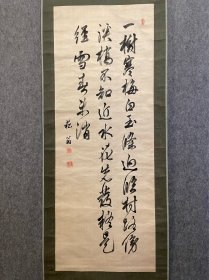 一樹寒梅白玉條迥臨村路傍
溪橋不知近水花先發疑是
經雪春未消